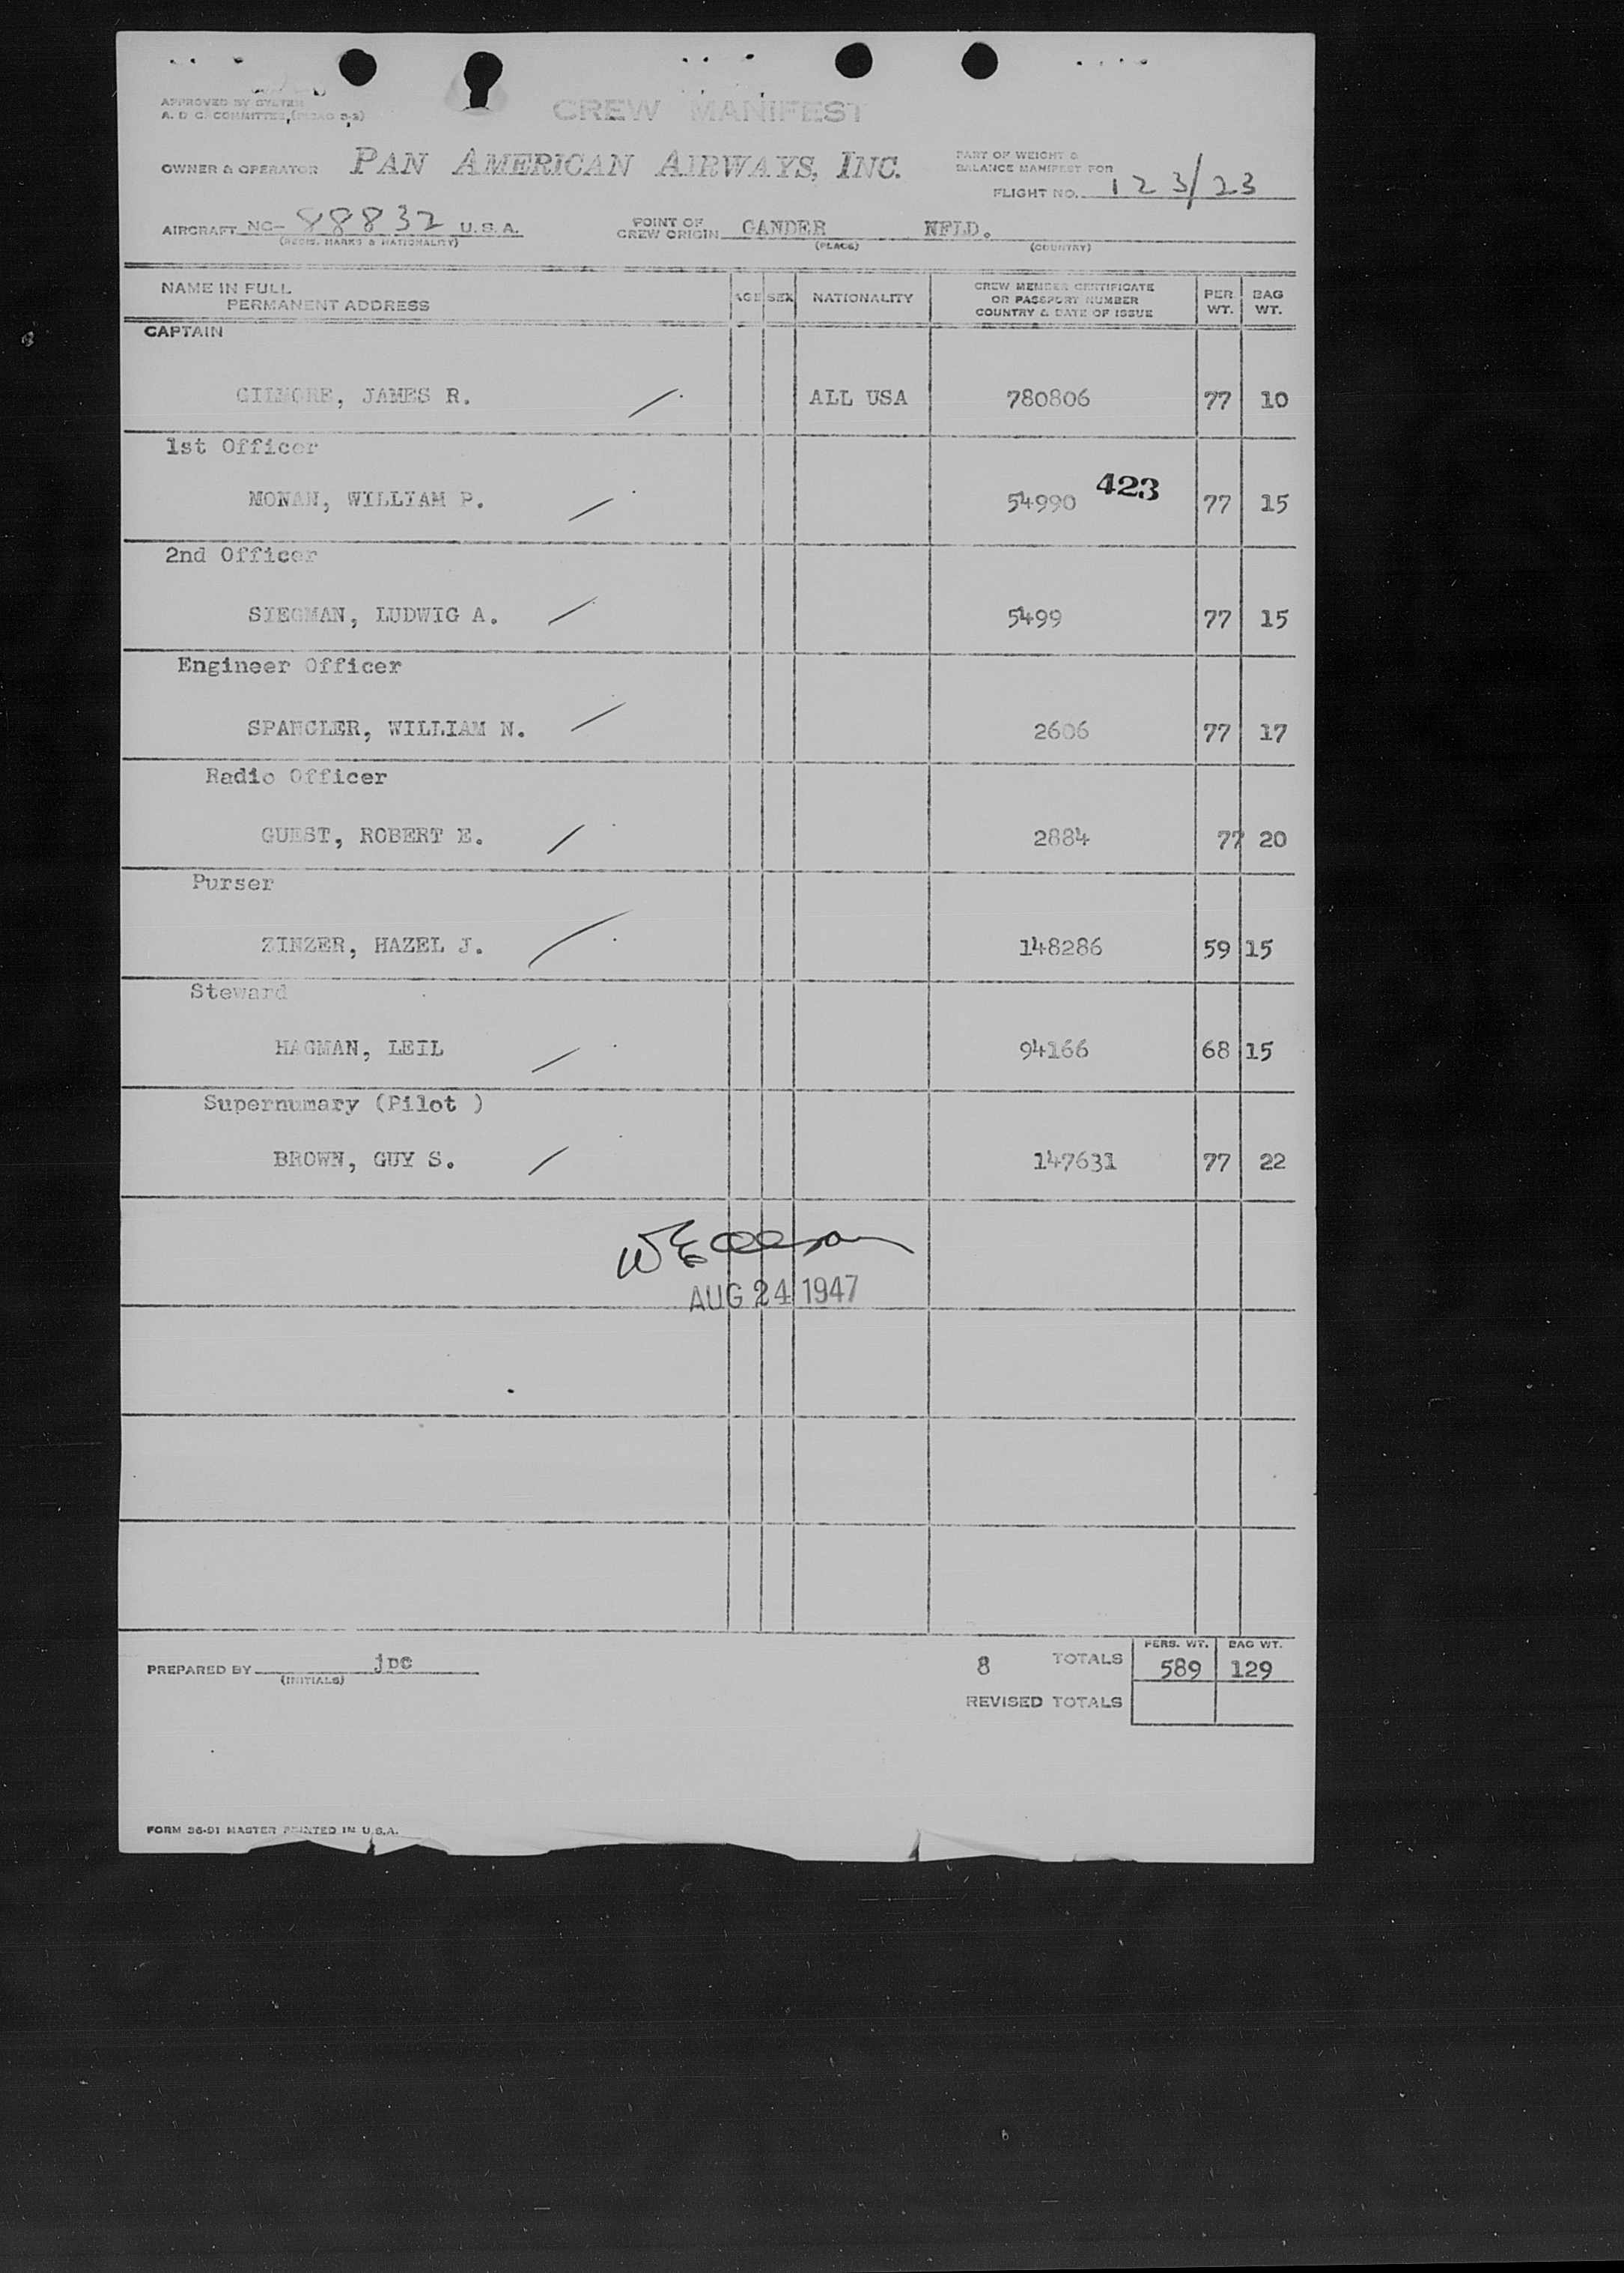 APPROVED BY SYSTEM
CREW MANIFEST
A. D C. COMMITTEE,
OWNER & OPERATOR PAN AMERICAN AIRWAYS, INC.
PART OF WEIGHT &
BALANCE MANIFEST FOR
FLIGHT NO. 123/23
AIRCRAFT NC- 88832 U.S.A.
(REGIS. MARKS & NATIONALITY)
POINT OF
CREW ORIGIN GANDER NFLD.
(PLACE) (COUNTRY)
NAME IN FULL
PERMANENT ADDRESS
AGE SEX NATIONALITY
CREW MEMBER CERTIFICATE
OR PASSPORT NUMBER
COUNTRY & DATE OF ISSUE
PER
WT.
BAG
WT.
CAPTAIN
GILMORE, JAMES R. ALL USA 780806 77 10
1st Officer
423
MONAN, WILLIAM P. 54990 77 15
2nd Officer
SIEGMAN, LUDWIG A. 5499 77 15
Engineer Officer
SPANGLER, WILLIAM N. 2606 77 17
Radio Officer
GUEST, ROBERT E. 2884 77 20
Purser
ZINZER, HAZEL J. 148286 59 15
Steward
HAGMAN, LEIL 94166 68 15
Supernumary (Pilot )
BROWN, GUY S. 147631 77 22
AUG 24 1947
PERS. WT. BAG WT.
PREPARED BY jDC 8 TOTALS 589 129
(INITIALS)
REVISED TOTALS
FORM 36-91 MASTER PRINTED IN U.S.A.